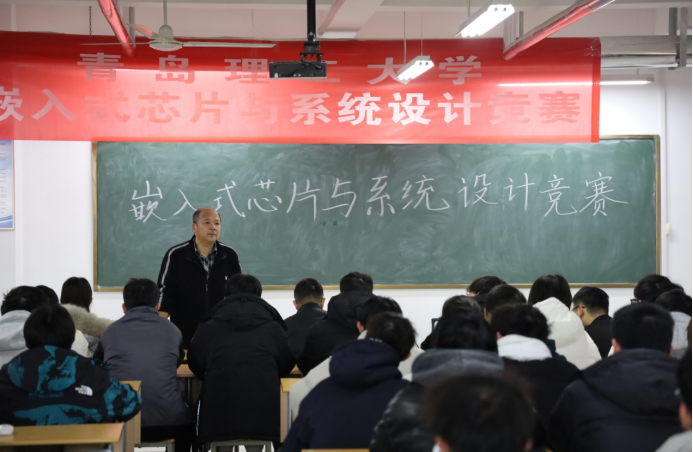 青岛理工大学
嵌入式芯片与系统设计竞赛
嵌入式芯片与系统设计竞赛